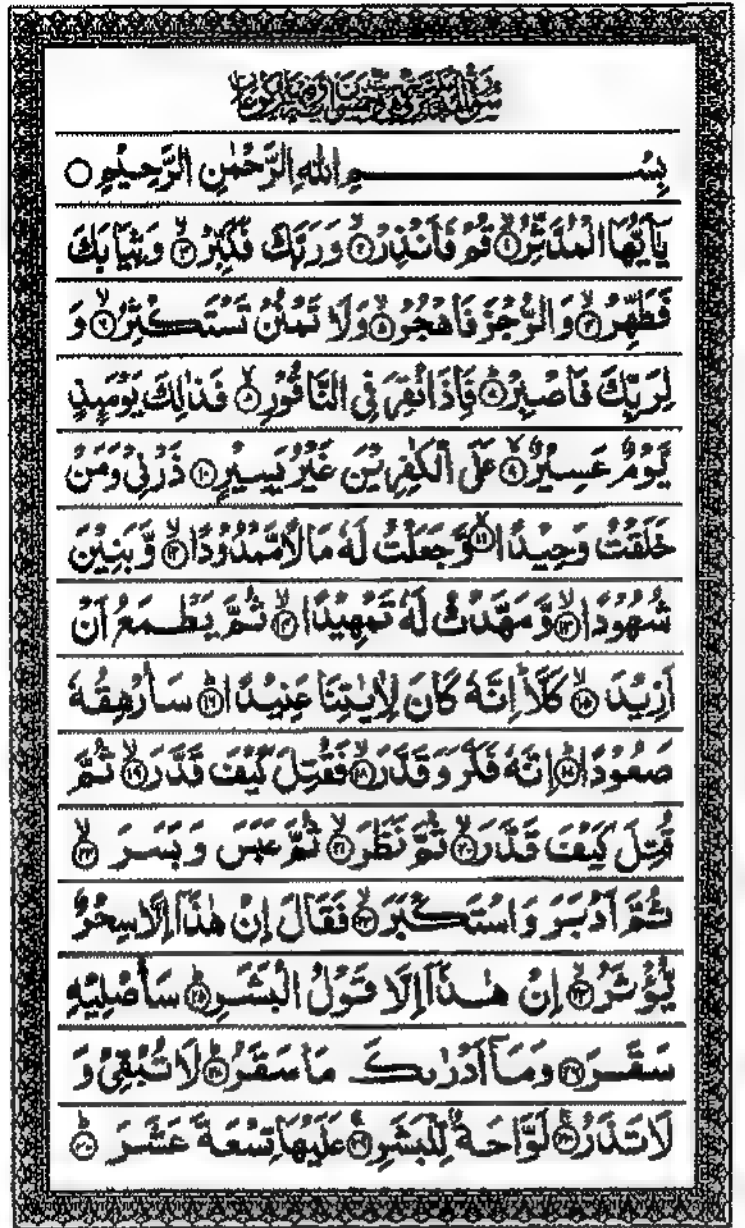 بِسْمِ اللهِ الرَّحْمٰنِ الرَّحِيْمِ ○
يٰۤاَيُّهَا الْمُدَّثِّرُ ۙ﴿۱﴾ قُمْ فَاَنْذِرْ ۙ﴿۲﴾ وَرَبَّكَ فَكَبِّرْ ۙ﴿۳﴾ وَثِيَابَكَ
فَطَهِّرْ ۙ﴿۴﴾ وَالرُّجْزَ فَاهْجُرْ ۙ﴿۵﴾ وَلَا تَمْنُنْ تَسْتَكْثِرُ ۙ﴿۶﴾ وَ
لِرَبِّكَ فَاصْبِرْ ؕ﴿۷﴾ فَاِذَا نُقِرَ فِی النَّاقُوْرِ ۙ﴿۸﴾ فَذٰلِكَ يَوْمَئِذٍ
يَّوْمٌ عَسِيْرٌ ۙ﴿۹﴾ عَلَى الْكٰفِرِيْنَ غَيْرُ يَسِيْرٍ ﴿۱۰﴾ ذَرْنِیْ وَمَنْ
خَلَقْتُ وَحِيْدًا ۙ﴿۱۱﴾ وَّجَعَلْتُ لَهٗ مَالًا مَّمْدُوْدًا ۙ﴿۱۲﴾ وَّبَنِيْنَ
شُهُوْدًا ۙ﴿۱۳﴾ وَّمَهَّدْتُّ لَهٗ تَمْهِيْدًا ۙ﴿۱۴﴾ ثُمَّ يَطْمَعُ اَنْ
اَزِيْدَ ۙ﴿۱۵﴾ كَلَّا ؕ اِنَّهٗ كَانَ لِاٰيٰتِنَا عَنِيْدًا ؕ﴿۱۶﴾ سَاُرْهِقُهٗ
صَعُوْدًا ؕ﴿۱۷﴾ اِنَّهٗ فَكَّرَ وَقَدَّرَ ۙ﴿۱۸﴾ فَقُتِلَ كَيْفَ قَدَّرَ ۙ﴿۱۹﴾ ثُمَّ
قُتِلَ كَيْفَ قَدَّرَ ۙ﴿۲۰﴾ ثُمَّ نَظَرَ ۙ﴿۲۱﴾ ثُمَّ عَبَسَ وَبَسَرَ ۙ﴿۲۲﴾
ثُمَّ اَدْبَرَ وَاسْتَكْبَرَ ۙ﴿۲۳﴾ فَقَالَ اِنْ هٰذَاۤ اِلَّا سِحْرٌ
يُّؤْثَرُ ۙ﴿۲۴﴾ اِنْ هٰذَاۤ اِلَّا قَوْلُ الْبَشَرِ ؕ﴿۲۵﴾ سَاُصْلِيْهِ
سَقَرَ ﴿۲۶﴾ وَمَاۤ اَدْرٰىكَ مَا سَقَرُ ؕ﴿۲۷﴾ لَا تُبْقِیْ وَ
لَا تَذَرُ ۚ﴿۲۸﴾ لَوَّاحَةٌ لِّلْبَشَرِ ۚ﴿۲۹﴾ عَلَيْهَا تِسْعَةَ عَشَرَ ؕ﴿۳۰﴾